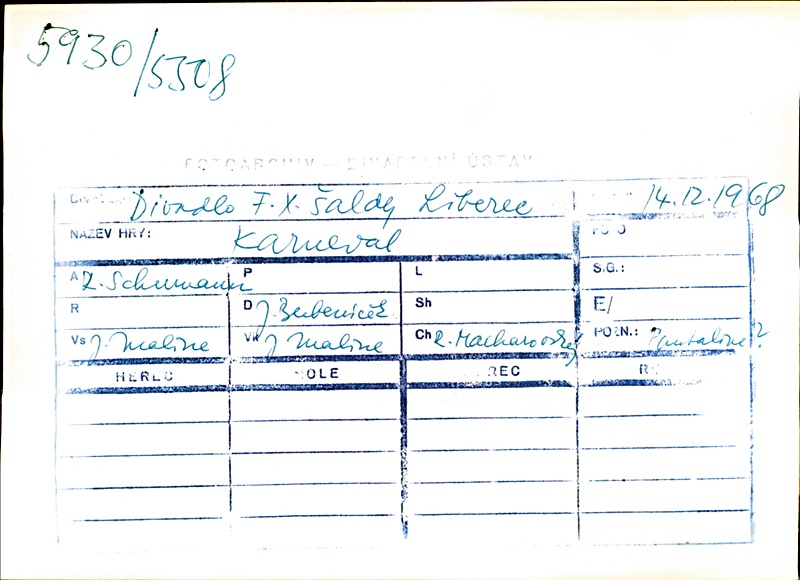 5930/5508
FOTOARCHIV – DIVADELNÍ ÚSTAV
Divadlo F. X. Šaldy Liberec 14.12.1968
NÁZEV HRY: Karneval FOTO
A R. Schumann P L S.G.:
R D J. Bubeníček Sh E/
Vs J. Malina Vk J. Malina Ch R. Macharovský POZN.: Pantalone?
HEREC ROLE HEREC